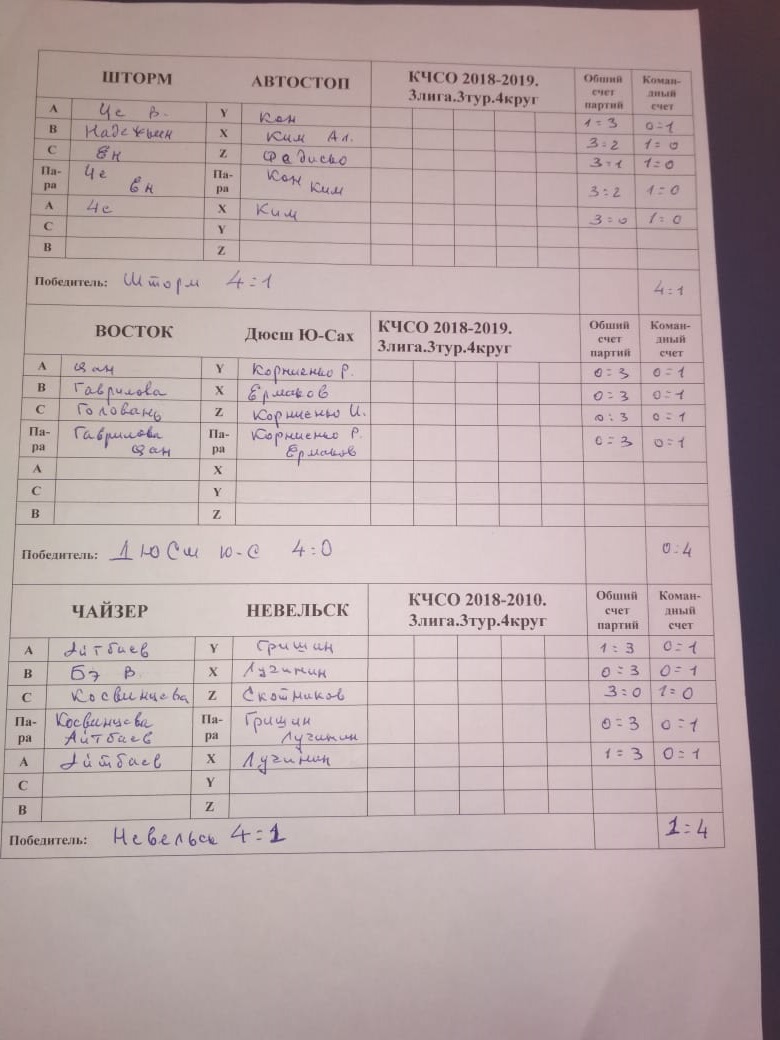 ШТОРМ АВТОСТОП КЧСО 2018-2019. Общий Коман-
3лига.3тур.4круг счет дный
партий счет
A Че В. Y Кон 1:3 0:1
B Надежкин X Ким Ал. 3:2 1:0
C Ен Z Фадиско 3:1 1:0
Па- Че Па- Кон
ра Ен ра Ким 3:2 1:0
A Че X Ким 3:0 1:0
C Y
B Z
Победитель: Шторм 4:1 4:1
ВОСТОК Дюсш Ю-Сах КЧСО 2018-2019. Общий Коман-
3лига.3тур.4круг счет дный
партий счет
A Цан Y Корниенко Р. 0:3 0:1
B Гаврилова X Ермаков 0:3 0:1
C Головань Z Корниенко И. 0:3 0:1
Па- Гаврилова Па- Корниенко Р. 0:3 0:1
ра Цан ра Ермаков
A X
C Y
B Z
Победитель: ДЮСШ Ю-С 4:0 0:4
ЧАЙЗЕР НЕВЕЛЬСК КЧСО 2018-2010. Общий Коман-
3лига.3тур.4круг счет дный
партий счет
A Айтбаев Y Гришин 1:3 0:1
B Бэ В. X Лучинин 0:3 0:1
C Косвинцева Z Скотников 3:0 1:0
Па- Косвинцева Па- Гришин 0:3 0:1
ра Айтбаев ра Лучинин
A Айтбаев X Лучинин 1:3 0:1
C Y
B Z
Победитель: Невельск 4:1 1:4